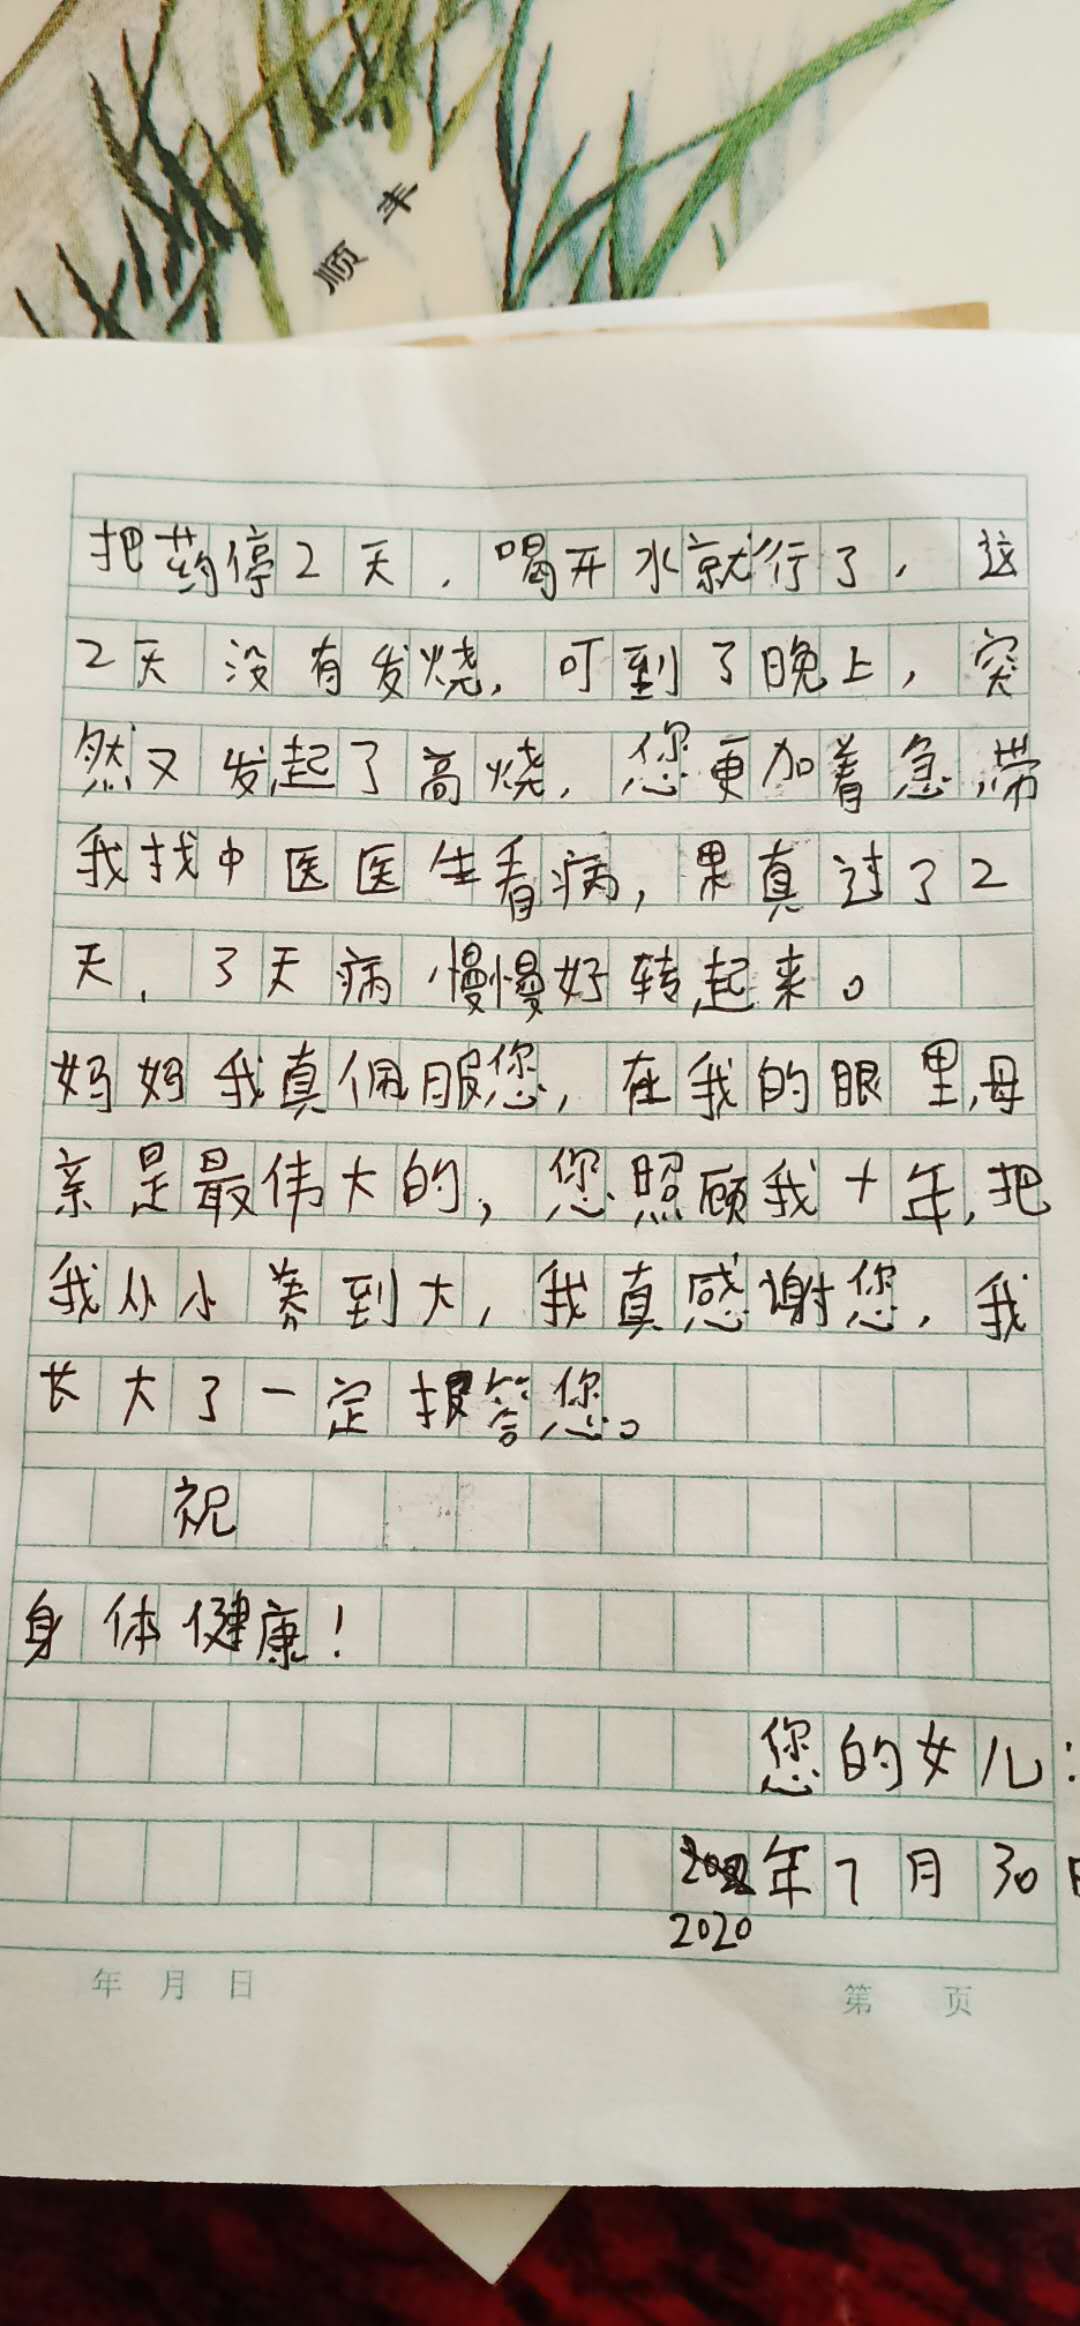 顺丰
把药停2天，喝开水就行了，这
2天没有发烧，可到了晚上，突
然又发起了高烧，您更加着急，带
我找中医医生看病，果真过了2
天，3天病，慢慢好转起来。
妈妈我真佩服您，在我的眼里，母
亲是最伟大的，您照顾我十年，把
我从小养到大，我真感谢您，我
长大了一定报答您。
祝
身体健康！
您的女儿：
年7月30日
2020
年 月 日
第 页